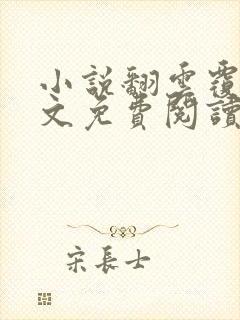 小說翻雲覆
文免費閱讀
宋長士